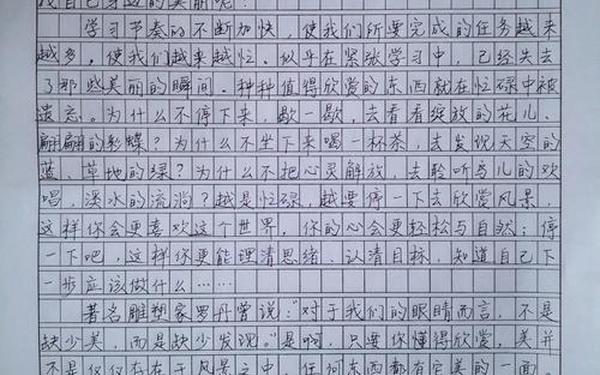 我自己身边的美丽呢？
学习节奏的不断加快，使我们所要完成的任务越来
越多，使我们越来越忙。似乎在紧张学习中，已经失去
了那些美丽的瞬间。种种值得欣赏的东西就在忙碌中被
遗忘。为什么不停下来，歇一歇，去看看绽放的花儿、
翩翩的彩蝶？为什么不坐下来喝一杯茶，去发现天空的
蓝、草地的绿？为什么不把心灵解放，去聆听鸟儿的欢
唱，溪水的流淌？越是忙碌，越要停一下去欣赏风景，
这样你会更喜欢这个世界，你的心会更轻松与自然；停
一下吧，这样你更能理清思绪、认清目标，知道自己下
一步应该做什么……
著名雕塑家罗丹曾说：“对于我们的眼睛而言，不是
缺少美，而是缺少发现。”是啊，只要你懂得欣赏，美并
不是仅仅存在于风景之中，任何东西都有完美的一面。